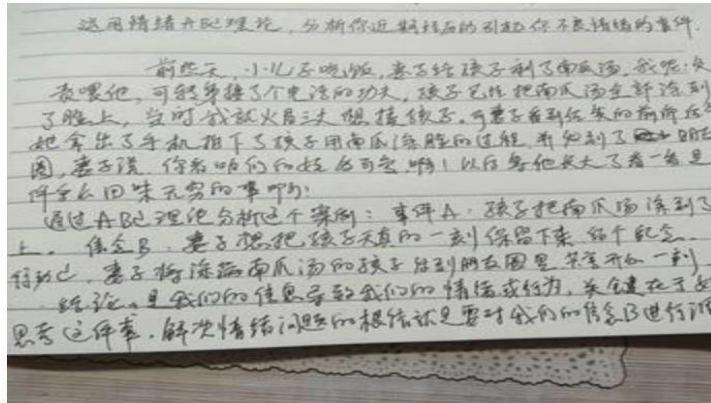 运用情绪ABC理论,分析你近期经历的引起你不良情绪的事件.
前些天,小儿子吃饭,妻子给孩子制了南瓜汤.我呢:负
责喂他,可我就接了个电话的功夫,孩子已经把南瓜汤全部涂到
了脸上,当时我就火冒三丈想揍孩子.可妻子看到
她拿出了手机拍下了孩子用南瓜涂脸的过程.并分到了朋友
圈,妻子说:你看咱们的娃多可爱啊!以后等他长大了看一看是
件多么回味无穷的事啊!
通过ABC理论分析这个案例:事件A:孩子把南瓜汤涂到了
上. 信念B.妻子想把孩子天真的一刻保留下来.给个纪念.
行动C.妻子将涂满南瓜汤的孩子分到朋友圈里.
结论.是我们的信息导致我们的情绪或行为,关键在于
思考这件事.解决情绪问题的根结就是要对我们的信念B进行